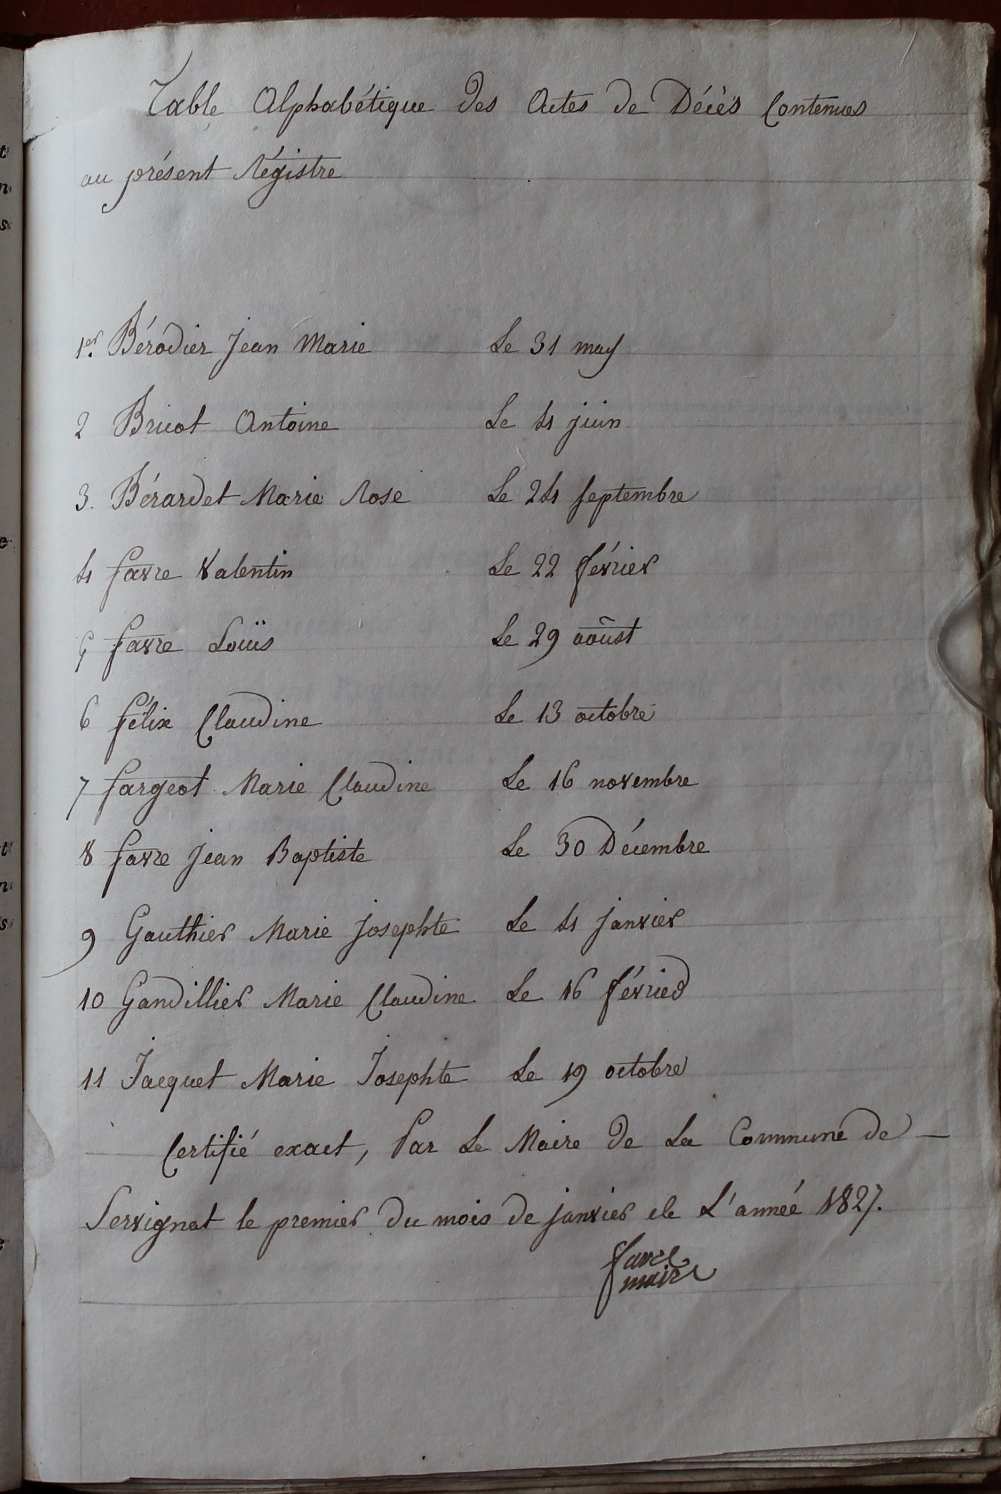 Table Alphabétique des Actes de Décès Contenues
au présent Régistre
1er. Bérodier Jean Marie Le 31 may
2 Bricot Antoine Le 4 juin
3. Bérardet Marie Rose Le 24 septembre
4 favre Valentin Le 22 février
5 favre Louïs Le 29 aoûst
6 félix Claudine Le 13 octobre
7 fargeot Marie Claudine Le 16 novembre
8 favre Jean Baptiste Le 30 Décembre
9 Gauthier Marie josephte Le 4 janvier
10 Gandillier Marie Claudine Le 16 février
11 Jacquet Marie Josephte Le 19 octobre
Certifié exact, Par Le Maire de La Commune de
Servignat le premier du mois de janvier de L'année 1827.
favre
maire